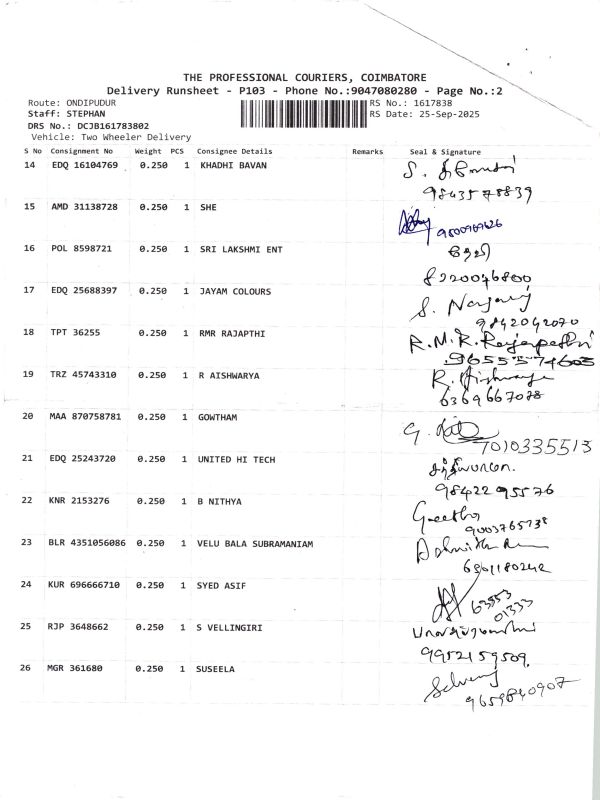 THE PROFESSIONAL COURIERS, COIMBATORE
Delivery Runsheet - P103 - Phone No.:9047080280 - Page No.:2
Route: ONDIPUDUR RS No.: 1617838
Staff: STEPHAN RS Date: 25-Sep-2025
DRS No.: DCJB161783802
Vehicle: Two Wheeler Delivery
S No Consignment No Weight PCS Consignee Details Remarks Seal & Signature
14 EDQ 16104769 0.250 1 KHADHI BAVAN S.
9843578839
15 AMD 31138728 0.250 1 SHE
16 POL 8598721 0.250 1 SRI LAKSHMI ENT தேவி
8220046800
17 EDQ 25688397 0.250 1 JAYAM COLOURS S.
9842042070
18 TPT 36255 0.250 1 RMR RAJAPTHI R.M.R. Rajapathi
9655574603
19 TRZ 45743310 0.250 1 R AISHWARYA R. Aishwarya
6369667078
20 MAA 870758781 0.250 1 GOWTHAM G.
7010335513
21 EDQ 25243720 0.250 1 UNITED HI TECH
9842295576
22 KNR 2153276 0.250 1 B NITHYA Geetha
9003765738
23 BLR 4351056086 0.250 1 VELU BALA SUBRAMANIAM
6361180242
24 KUR 696666710 0.250 1 SYED ASIF
63553
01333
25 RJP 3648662 0.250 1 S VELLINGIRI
9952159509.
26 MGR 361680 0.250 1 SUSEELA
9659840907